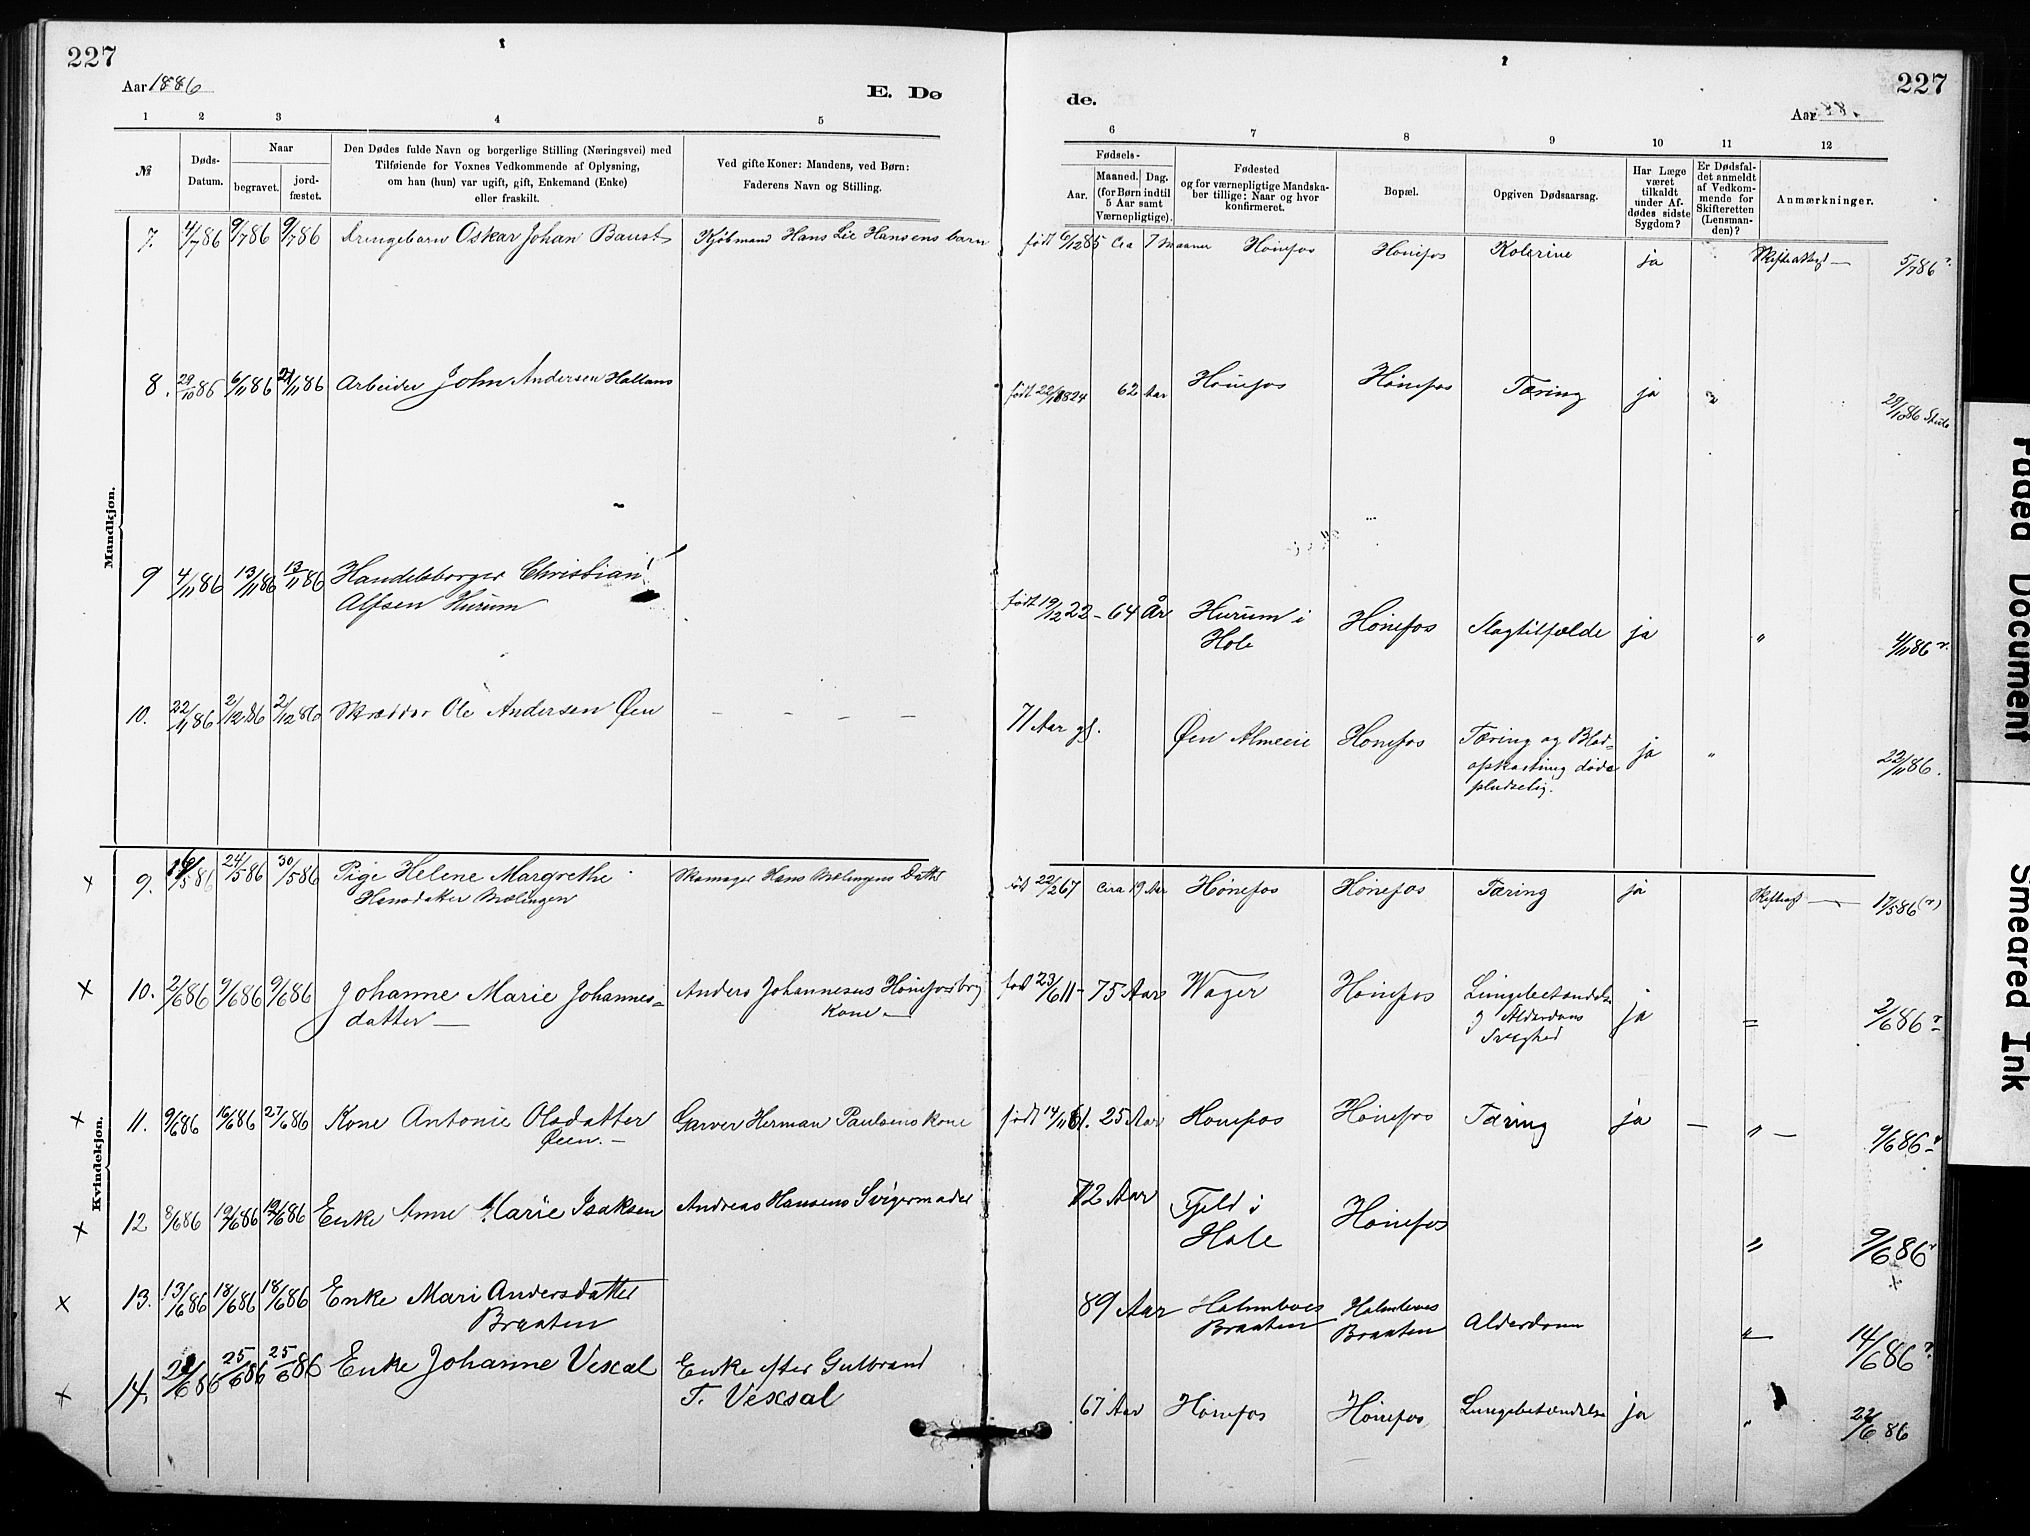 227
Aar 1886
E. Dø
1 2 3 4 5
№
Døds-
Datum.
Naar
begravet.
jord-
fæstet.
Den Dødes fulde Navn og borgerlige Stilling (Næringsvei) med
Tilføiende for Voxnes Vedkommende af Oplysning,
om han (hun) var ugift, gift, Enkemand (Enke)
eller fraskilt.
Ved gifte Koner: Mandens, ved Børn:
Faderens Navn og Stilling.
Mandkjøn.
7. 4/7 86 9/7 86 9/7 86 Drengebarn Oskar Johan Kjøbmand Hans Lie Hansens barn
8. 29/10 86 6/11 86 21/11 86 Arbeider John Andersen
9 4/11 86 13/11 86 13/11 86 Handelsborger Christian
Alfsen Hurum
10. 22/11 86 2/12 86 2/12 86 Skrædder Ole Andersen Øen — — — —
Kvindekjøn.
× 9. 16/5 86 24/5 86 30/5 86 Pige Helene Margrethe Skomager Hans Mælingens Datter
Hansdatter Mælingen
× 10. 2/6 86 9/6 86 9/6 86 Johanne Marie Johannes- Anders Johannesens
datter — Kone —
× 11. 9/6 86 16/6 86 27/6 86 Kone Antonie Olsdatter Garver Herman Paulsens kone
Øen. —
× 12 8/6 86 19/6 86 19/6 86 Enke Anne Marie Isaksen Andreas Hansens Svigermoder
× 13. 13/6 86 18/6 86 18/6 86 Enke Mari Andersdatter
Braaten
× 14. 22/6 86 25/6 86 25/6 86 Enke Johanne Vexal Enke efter Gulbrand
T. Vexsal
227
de.
Aar
6 7 8 9 10 11 12
Fødsels-
Aar.
Maaned. Dag.
(for Børn indtil
5 Aar samt
Værnepligtige).
Fødested
og for værnepligtige Mandska-
ber tillige: Naar og hvor
konfirmeret.
Bopæl.
Opgiven Dødsaarsag.
Har Læge
været
tilkaldt
under Af-
dødes sidste
Sygdom?
Er Dødsfal-
det anmeldt
af Vedkom-
mende for
Skifteretten
(Lensman-
den)?
Anmærkninger.
født 6/12 85 Cca 7 Hønefos Hønefos Kolerine ja 5/7 86
født 62 Aar Hønefos Hønefos Tæring ja 29/10 86
født 19/12 22 – 64 År Hurum i Hønefos Slagtilfælde ja " 4/11 86
Hole
71 Aar gl. Øen Almeeie Hønefos Tæring og Blod- ja "
opkastning døde 22/11 86.
pludselig.
født 22/2 67 Cca 19 Aar Hønefos Hønefos Tæring ja 17/5 86
født 23/6 11 – 75 Aar Wager Hønefos Lungebetændelse ja 2/6 86
Alderdoms
født 14/11 61. 25 Aar Hønefos Hønefos Tæring ja — " — 9/6 86
72 Aar Fjeld i Hønefos " 9/6 86
Hole
89 Aar Halmboes Halmboes Alderdom " 14/6 86
Braaten Braaten
67 Aar Hønefos Hønefos Lungebetændelse ja " 22/6 86
Faded Document
Smeared Ink